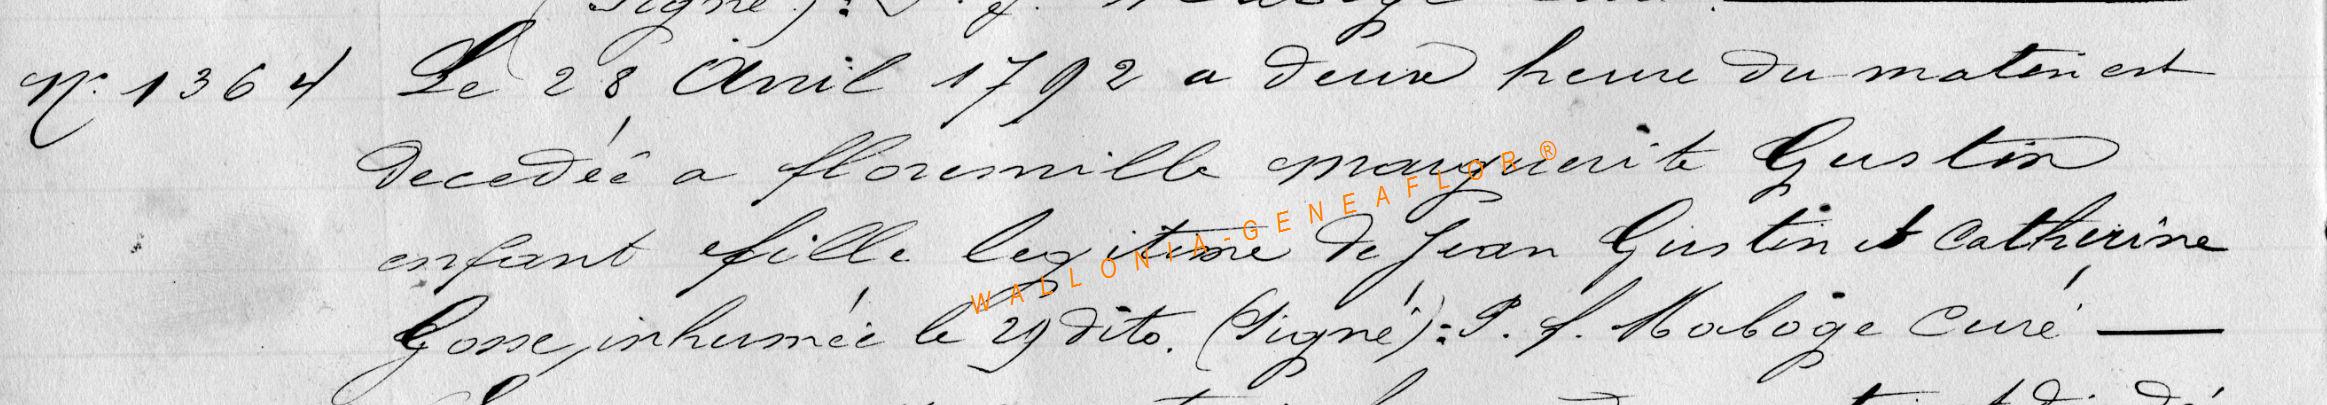 (Signé):
N.º 1364 Le 28 Avril 1792 a deux heure du matin est
decedéé a floremville marguerite Gustin
enfant fille legitime de Jean Gustin et Catherine
Gosse, inhumée le 29 dito. (Signé): P. f. Maboge Curé
WALLONIA-GENEAFLOR®